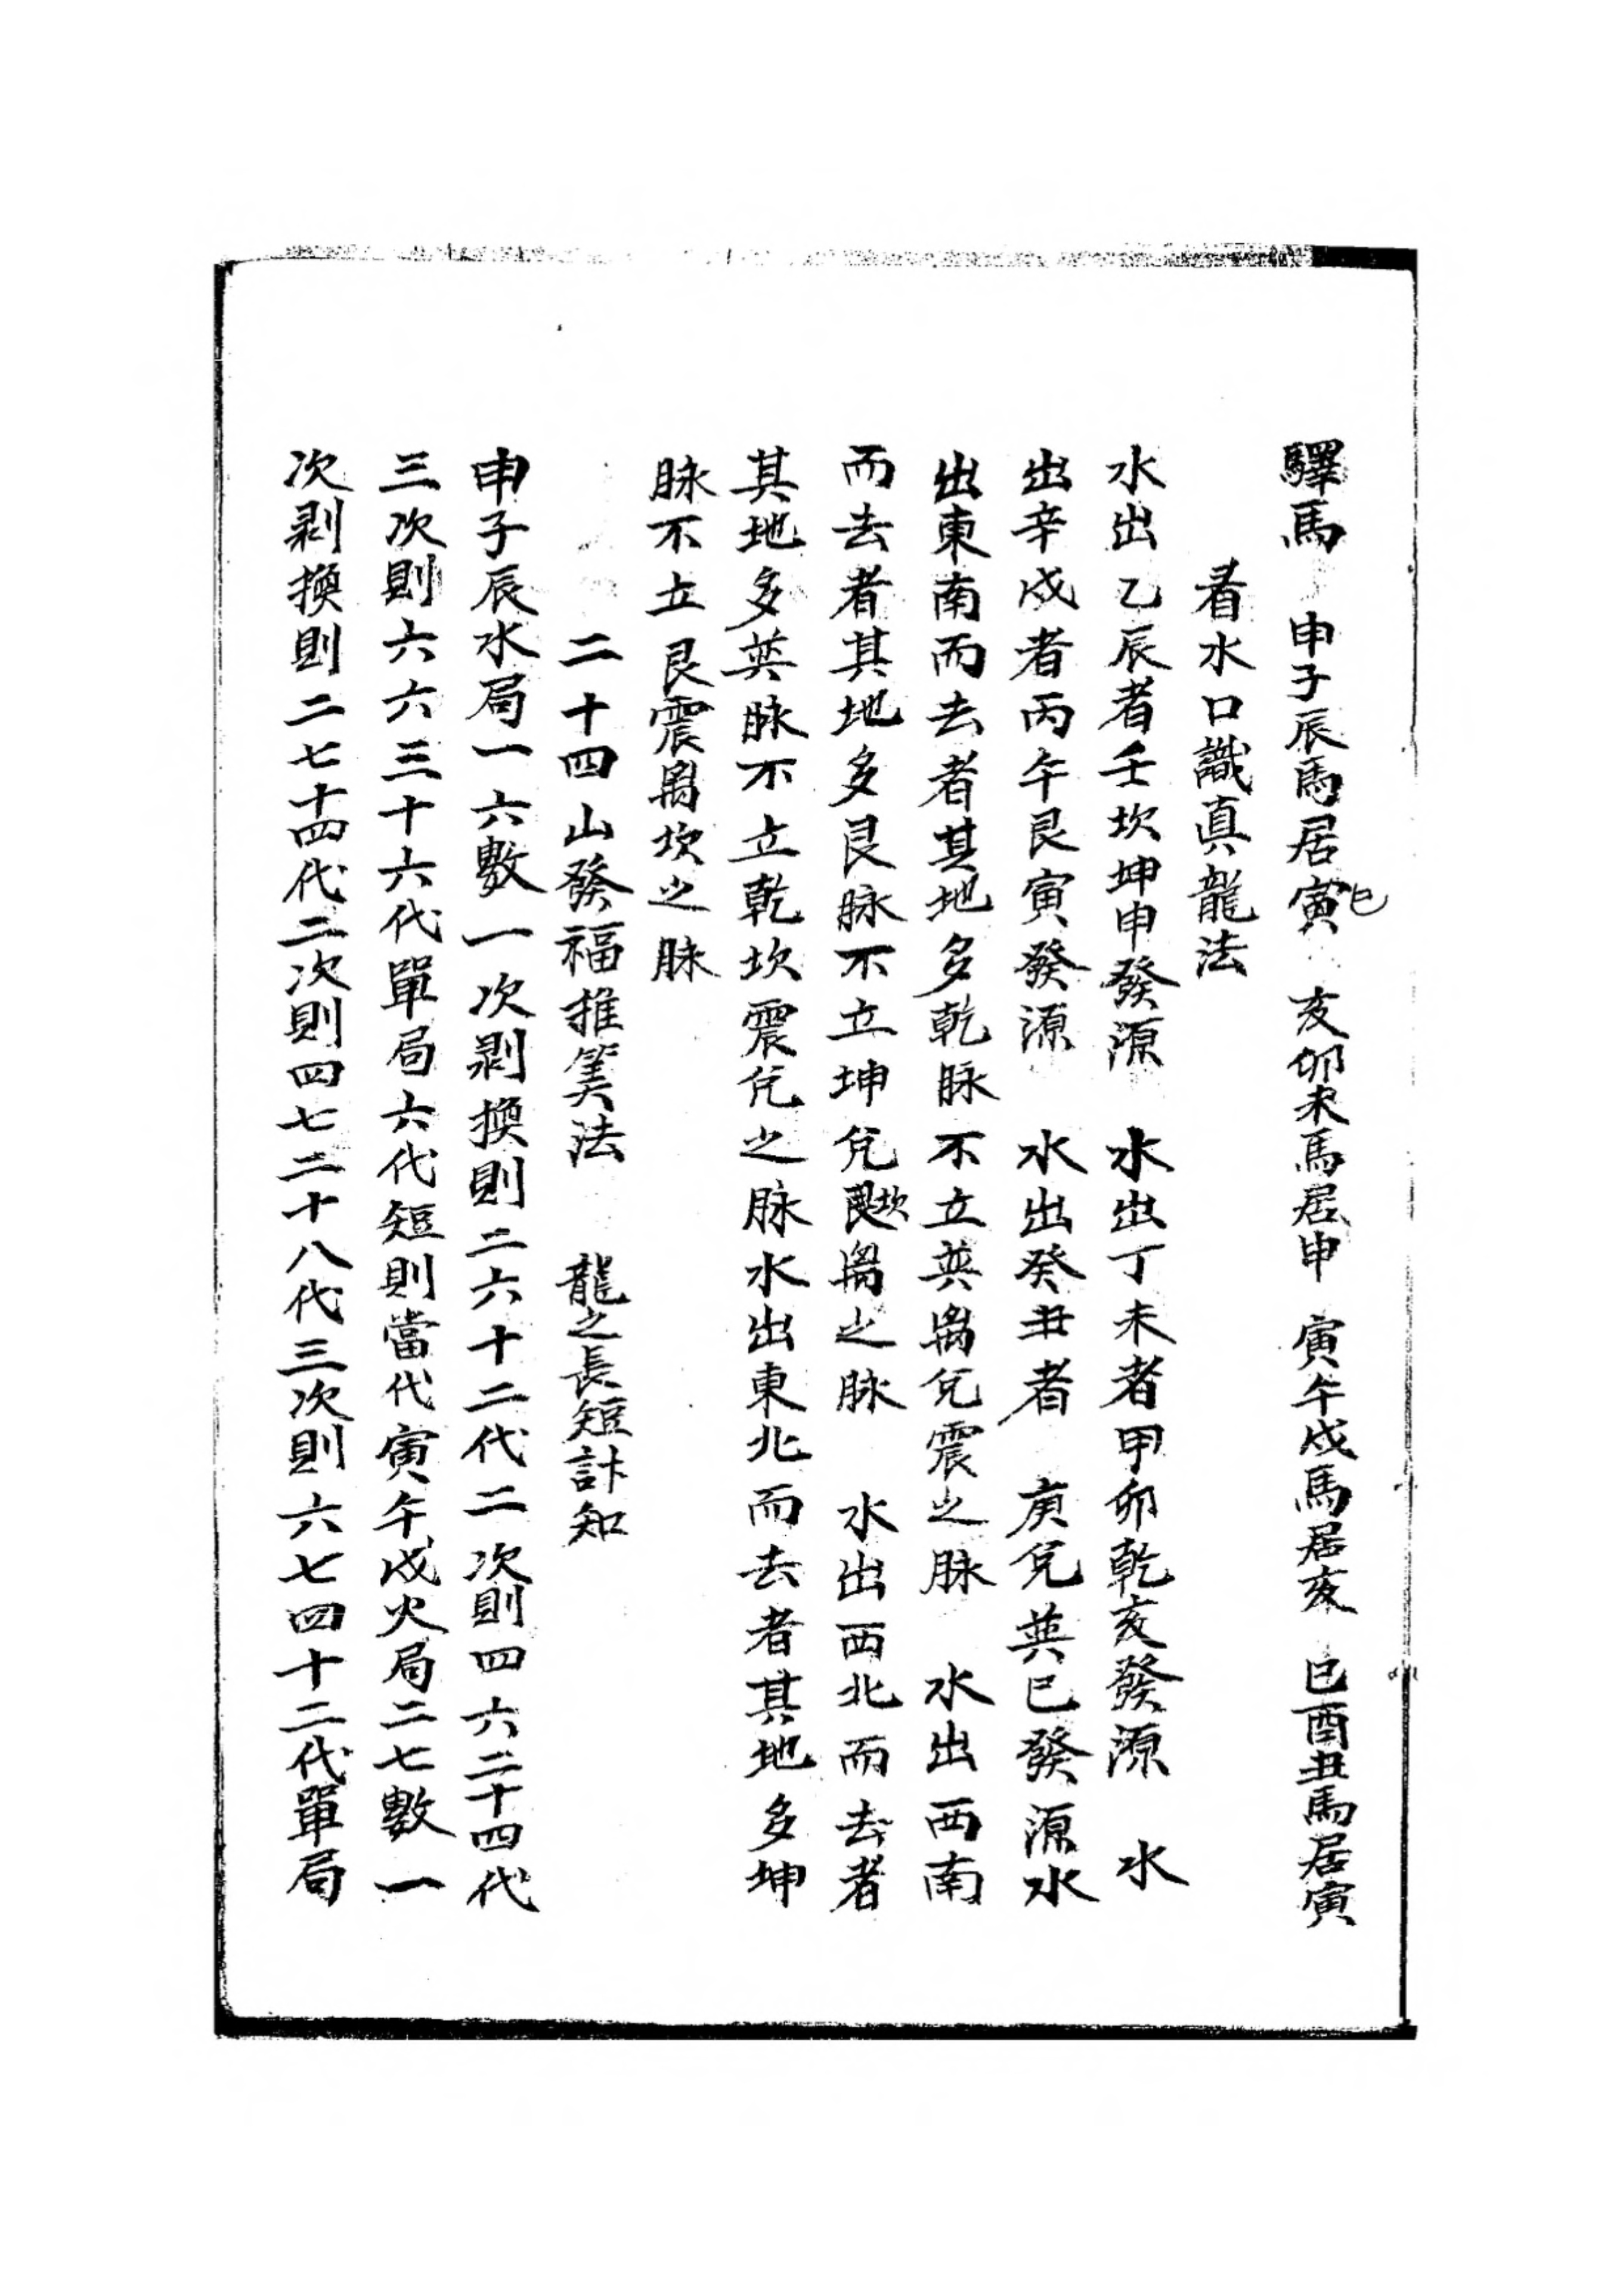 驛馬 申子辰馬居寅巳 亥卯未馬居申 寅午戌馬居亥 巳酉丑馬居寅
看水口識真龍法
水出乙辰者壬坎坤申發源 水出丁未者甲卯乾亥發源 水
出辛戌者丙午艮寅發源 水出癸丑者 庚兌巽巳發源水
出東南而去者其地多乾脉不立巽离兌震之脉 水出西南
而去者其地多艮脉不立坤兌坎离之脉 水出西北而去者
其地多巽脉不立乾坎震兌之脉水出東北而去者其地多坤
脉不立艮震离坎之脉
二十四山發福推筭法 龍之長短計知
申子辰水局一六數一次剥換則二六十二代二次則四六二十四代
三次則六六三十六代單局六代短則當代寅午戌火局二七數一
次剥換則二七十四代二次則四七二十八代三次則六七四十二代單局